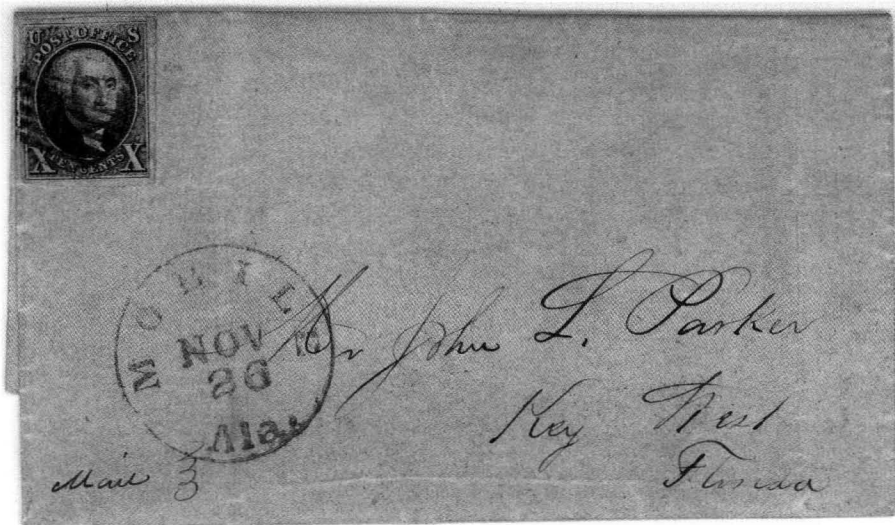 U S
POST OFFICE
X TEN CENTS X
MOBILE
NOV
26
Ala.
Mr John L. Parker
Key West
Florida
Mail